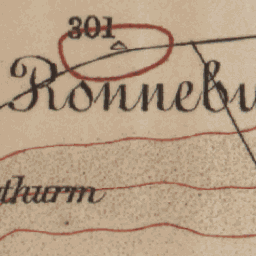 301
Ronnebu
thurm